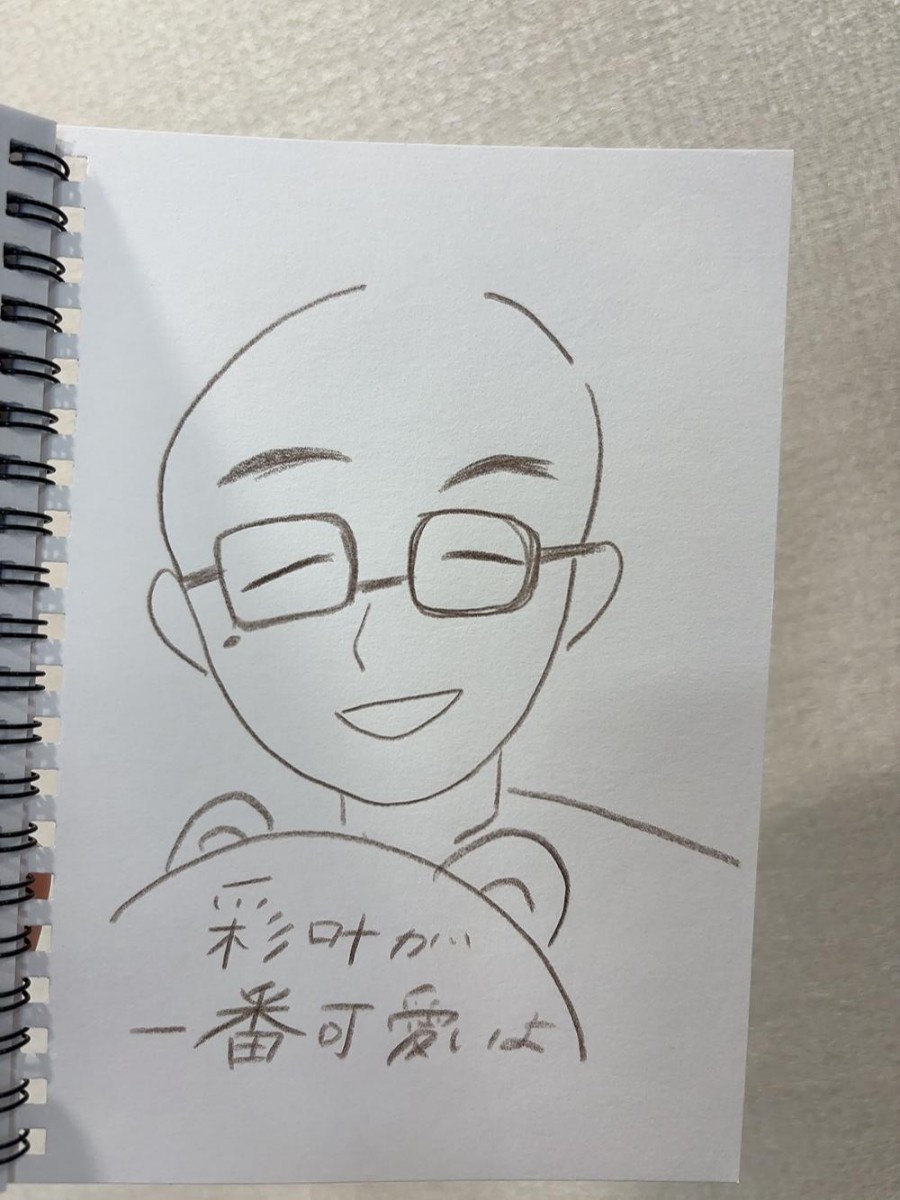 彩叶が
一番可愛いよ